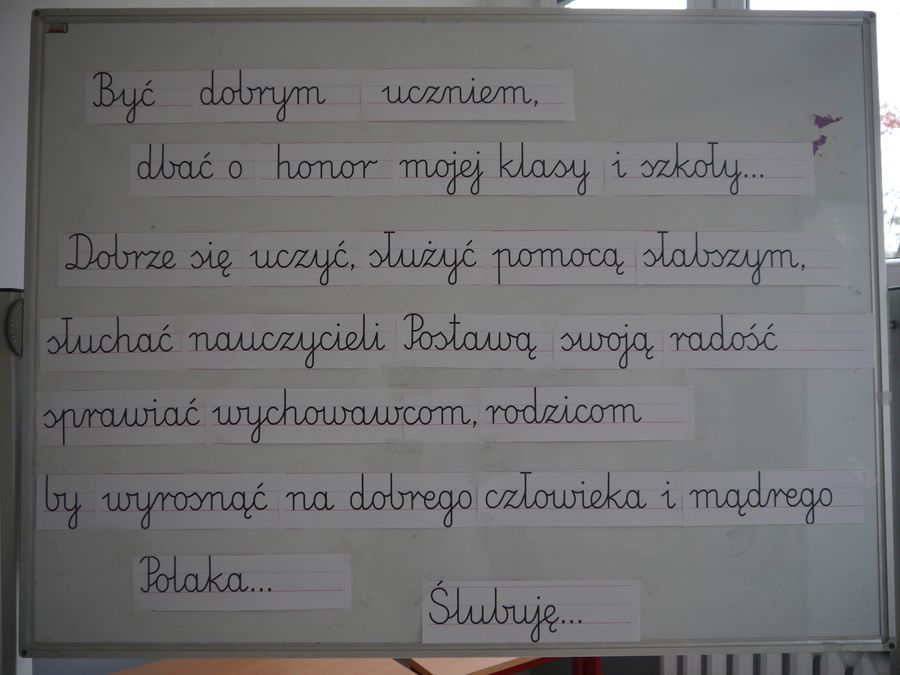 Być dobrym uczniem,
dbać o honor mojej klasy i szkoły...
Dobrze się uczyć, służyć pomocą słabszym,
słuchać nauczycieli Postawą swoją radość
sprawiać wychowawcom, rodzicom
by wyrosnąć na dobrego człowieka i mądrego
Polaka...
Ślubuję...